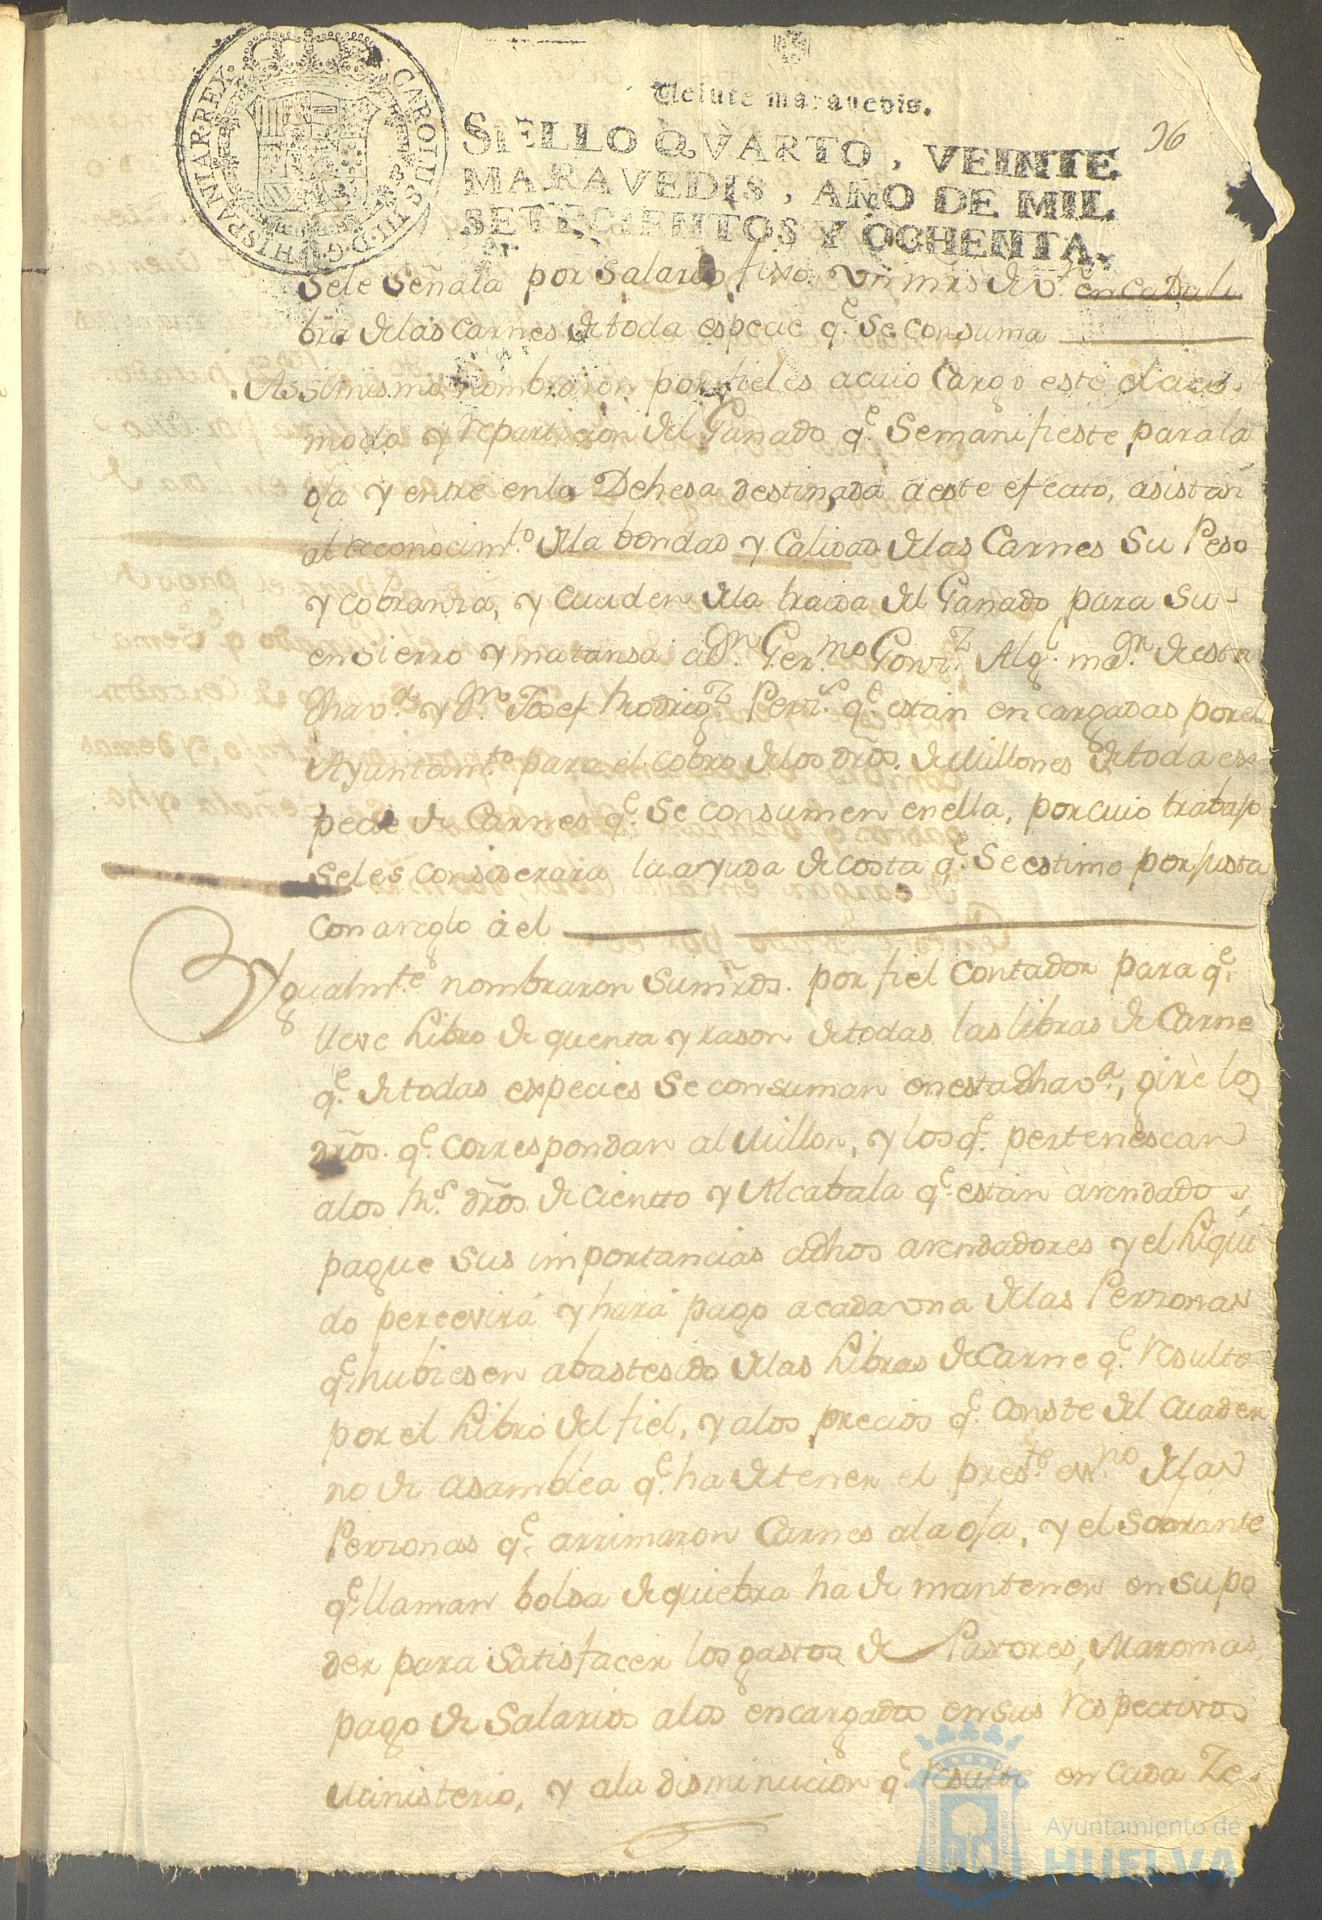 Veinte maravedis.
SELLO QVARTO, VEINTE
MARAVEDIS, AÑO DE MIL
SETECIENTOS Y OCHENTA.
CAROLUS III. D. G. HISPANIAR. REX
96
Sele Señala por Salario fixo. vn mrs de v.n en cada li
bra delas carnes de toda especie q.e Se consuma
Assimismo nombraron por fieles acuio Cargo este el aco-
modo y reparticion del Ganado q.e Semanifieste para la
oja y entre en la Dehesa destinada áeste efecto, asistan
al reconocim.to dela bondad y Calidad delas Carnes Su Peso
y cobranza, y Cuiden dela traida del Ganado para Su
ensierro y matansa a D.n Ger.mo Gonz.z Alg.l m.or de esta
dha v.a y D.n Josef Rodrig.z q.e estan encargadas por el
Ayuntam.to para el cobro delos dros. de Millones de toda es-
pecie de Carnes q.e Se consumen enella, por cuio trabajo
Seles considerara la ayuda de costa q.e Se estimo por justa
con areglo á el
Ygualm.te nombraron Sum.rds. por fiel Contador para q.e
lleve Libro de quenta y rason de todas las libras de Carne
q.e de todas especies Se consuman en esta dha v.a, gire los
dros. q.e correspondan al Millon, y los q.e pertenescan
alos R.s dros. de Ciento y Alcabala q.e estàn arendados,
pague Sus importancias adhos arendadores y el Liqui
do percevirá y hará pago acada vna delas Perzonas
q.e hubiesen abastesido delas Libras de Carne q.e resulte
por el Libro del fiel, y alos precios q.e Conste del Cuader
no de asamblea q.e ha de tener el pres.te ess.no delas
Perzonas q.e arrimaron Carnes ala oja, y el Sobrante
q.e llaman bolsa de quiebra ha de mantener en su po
der para Satisfacer los gastos de Pastores, Maromas,
pago de Salarios alos encargados en sus respectivos
Ministerio, y ala disminucion q.e resulte en Cada Ze-
Ayuntamiento de
HUELVA